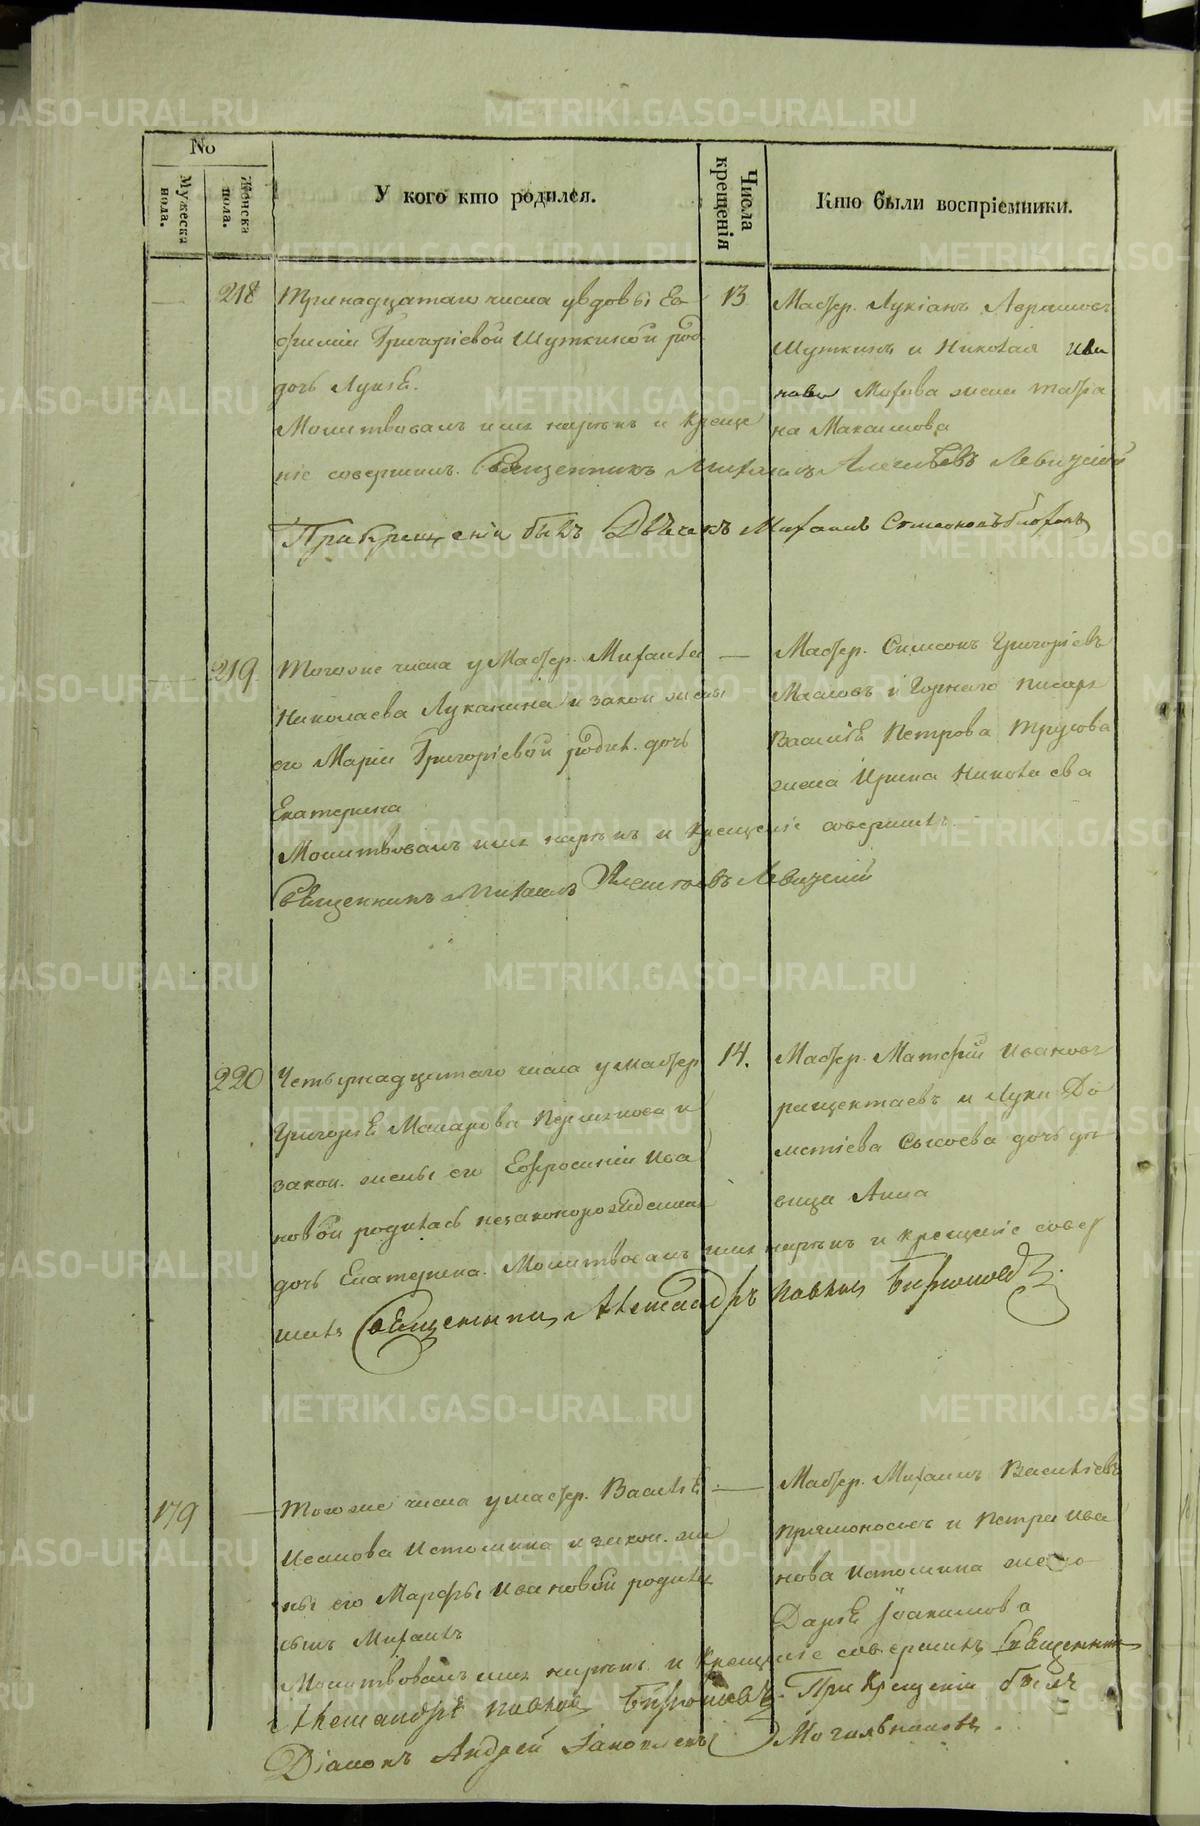 No
Мужеска пола.
Женска пола.
У кого кто родился.
Числа крещенія
Кто были воспріемники.
218
Тринадцатаго числа у вдовы Ев-
фиміи Григоріевой Шуткиной род
дочь
Молитвовалъ имя нарекъ и Креще
ніе совершилъ. Священникъ Михаилъ Левицкій
При Крещеніи былъ Дьячекъ Михаилъ
13
Мастер. Лукіанъ Аврамовъ
Шуткинъ и Николая Ива
нова жена Татіа
на Максимова
219.
Тогоже числа у Мастер. Михаила
Николаева Луканина и закон. жены
его Маріи Григоріевой родил. дочь
Екатерина
Молитвовалъ имя нарекъ и Крещеніе совершилъ.
Священникъ Михаилъ Левицкій
Мастер. Симеонъ Григоріевъ
Масловъ и Горнаго писаря
Василія Петрова Трусова
жена Ирина Николаева
220
Четырнадцатаго числа у мастер
Григорія Макарова и
закон. жены его Евфросиніи Ива
новой родилась незаконорожденная
дочь Екатерина. Молитвовалъ имя нарекъ и крещеніе совер
шилъ Священникъ Александръ Павловъ
14.
Мастер. Матфій Ивановъ
и Луки До
метіева Сысоева дочь дѣ
вица Анна
179
Тогоже числа у мастер. Василія
Иванова Истомина и закон. же
ны его Марфы Ивановой родился
сынъ Михаилъ
Молитвовалъ имя нарекъ и Крещеніе совершилъ Священникъ
Александръ Павловъ При Крещеніи былъ
Діаконъ Андрей Іаковлевъ Могильниковъ.
Мастер. Михаилъ Васильевъ
Прямоносовъ и Петра Ива
нова Истомина жена
Дарія Іоакимова
METRIKI.GASO-URAL.RU